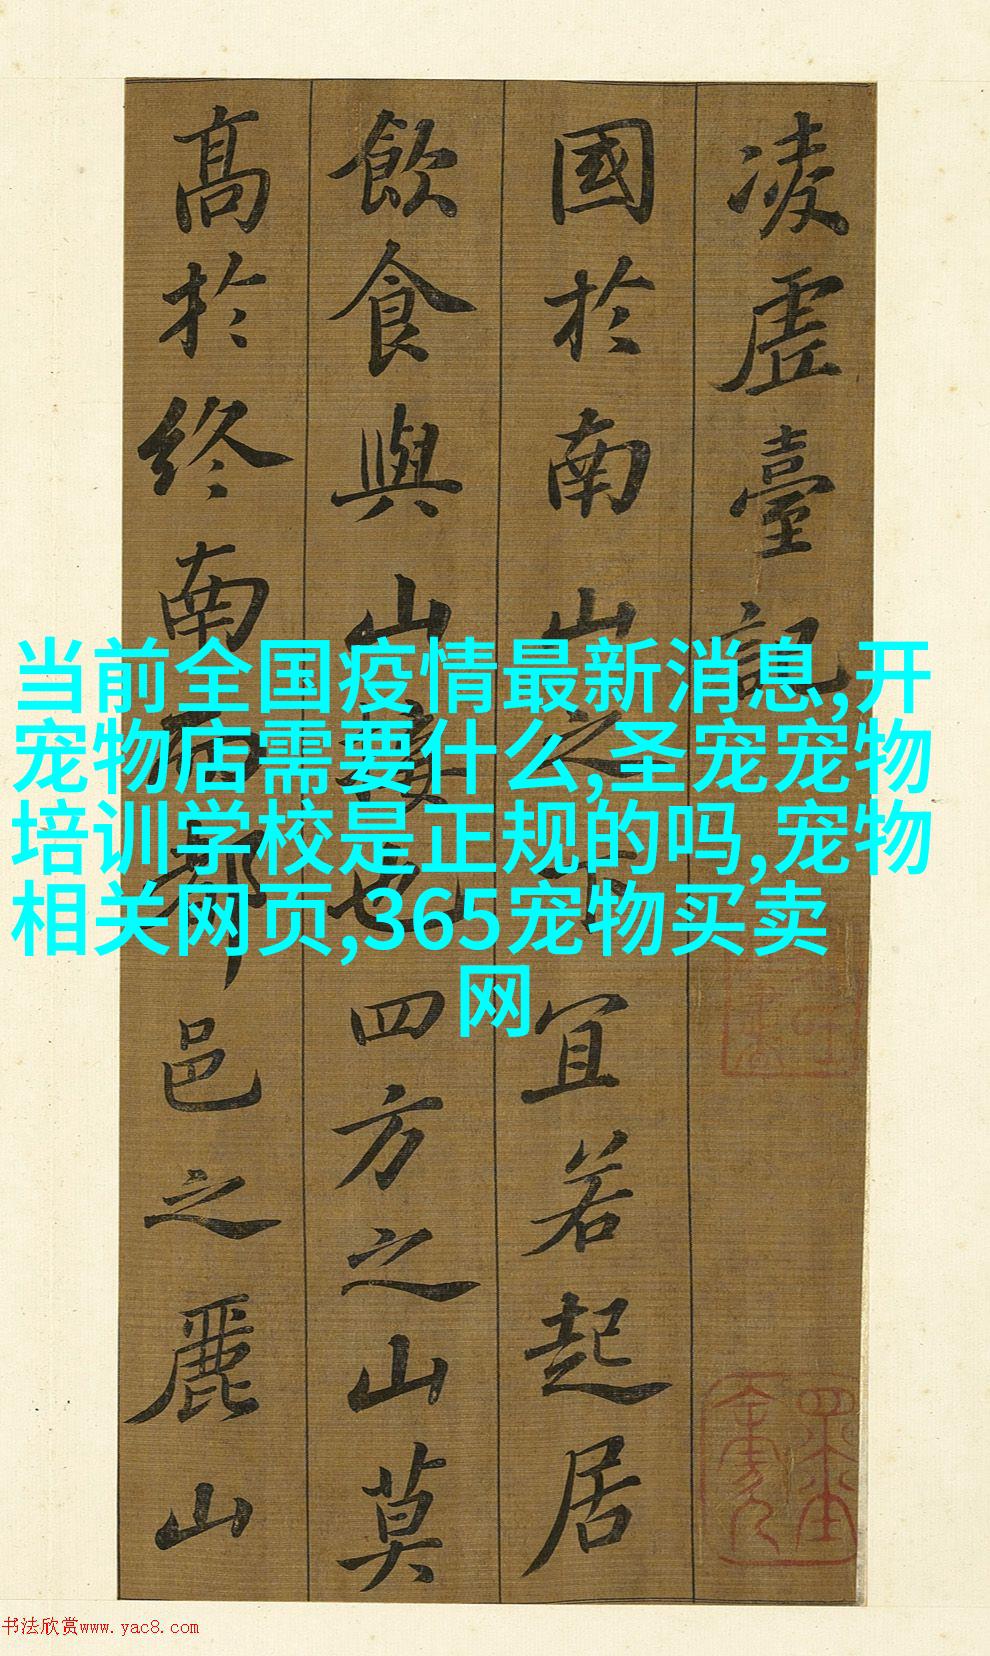 凌虛臺記
國於南山之下宜若起居
飲食與山接也四方之山莫
高於終南而都邑之麗山
当前全国疫情最新消息,开
宠物店需要什么,圣宠宠物
培训学校是正规的吗,宠物
相关网页,365宠物买卖
网
书法欣赏www.yac8.com